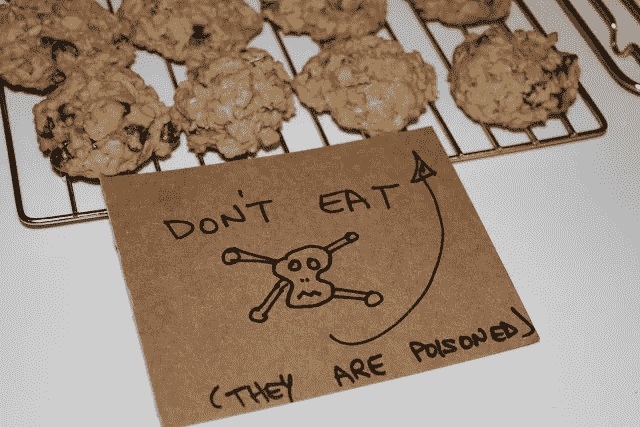 DON'T EAT
(THEY ARE POISONED)